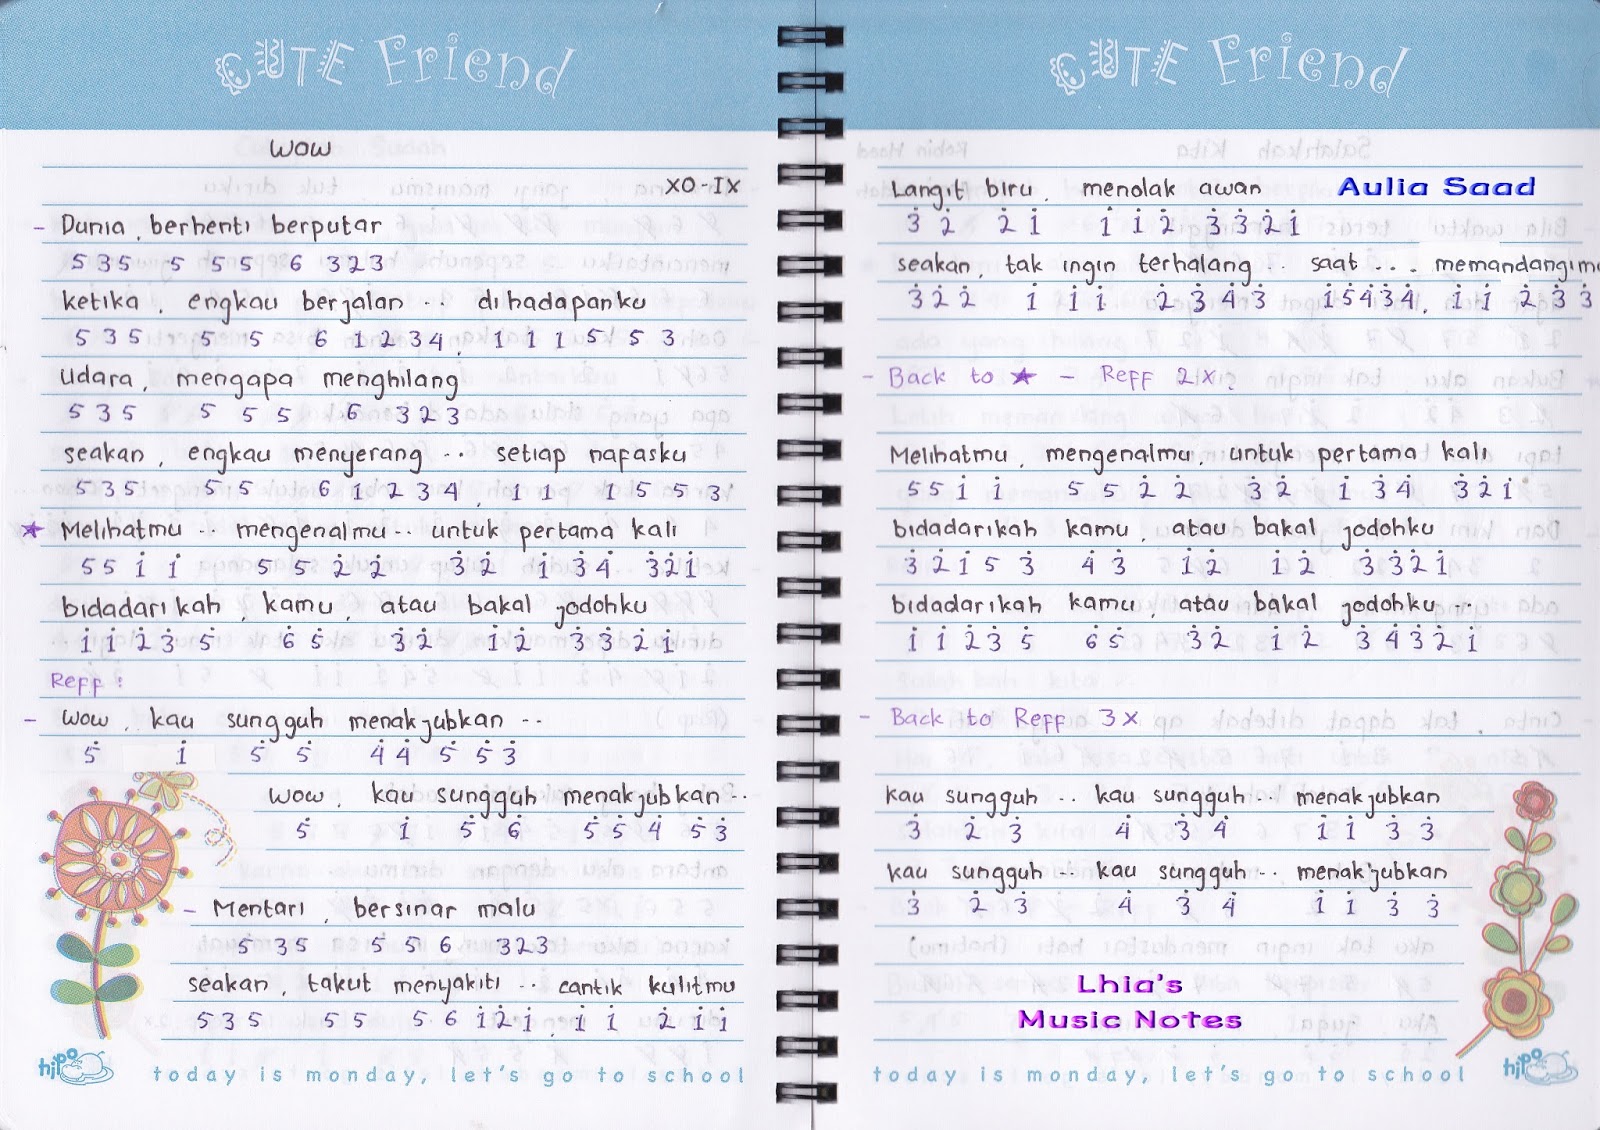 CUTE Friend
WOW
XO-IX
- Dunia, berhenti berputar
5 3 5 5 5 5 6 3 2 3
ketika, engkau berjalan .. dihadapanku
5 3 5 5 5 6 1 2 3 4, 1 1 1 5 5 3
Udara, mengapa menghilang
5 3 5 5 5 5 6 3 2 3
seakan, engkau menyerang .. setiap nafasku
5 3 5 5 5 6 1 2 3 4, 1 1 1 5 5 3
★ Melihatmu .. mengenalmu .. untuk pertama kali
5 5 i i 5 5 2̇ 2̇ 3̇ 2̇ i 3̇ 4̇ 3̇ 2̇ i
bidadarikah, kamu, atau bakal jodohku
i i 2̇ 3̇ 5̇ 6̇ 5̇ 3̇ 2̇ i 2̇ 3̇ 3̇ 2̇ i
Reff :
- Wow, kau sungguh menakjubkan ..
5̇ i 5̇ 5̇ 4̇ 4̇ 5̇ 5̇ 3̇
Wow, kau sungguh menakjubkan ..
5̇ i 5̇ 6̇ 5̇ 5̇ 4̇ 5̇ 3̇
- Mentari, bersinar malu
5 3 5 5 5 6 3 2 3
seakan, takut menyakiti .. cantik kulitmu
5 3 5 5 5 5 6 i 2̇ i, i i 2̇ i i
hipo
today is monday, let's go to school
CUTE Friend
Langit biru, menolak awan
Aulia Saad
3̇ 2̇ 2̇ i i i 2̇ 3̇ 3̇ 2̇ i
seakan, tak ingin terhalang .. saat ... memandangimu
3̇ 2̇ 2̇ i i i 2̇ 3̇ 4̇ 3̇ i 5̇ 4̇ 3̇ 4̇, i i 2̇ 3̇ 3̇
- Back to ★ - Reff 2x
Melihatmu, mengenalmu, untuk pertama kali
5 5 i i 5 5 2̇ 2̇ 3̇ 2̇ i 3̇ 4̇ 3̇ 2̇ i
bidadarikah kamu, atau bakal jodohku
3̇ 2̇ i 5 3̇ 4̇ 3̇ i 2̇ i 2̇ 3̇ 3̇ 2̇ i
bidadarikah kamu, atau bakal jodohku ..
i i 2̇ 3̇ 5̇ 6̇ 5̇ 3̇ 2̇ i 2̇ 3̇ 4̇ 3̇ 2̇ i
- Back to Reff 3x
kau sungguh .. kau sungguh .. menakjubkan
3̇ 2̇ 3̇ 4̇ 3̇ 4̇ i i 3̇ 3̇
kau sungguh .. kau sungguh .. menakjubkan
3̇ 2̇ 3̇ 4̇ 3̇ 4̇ i i 3̇ 3̇
Lhia's
Music Notes
hipo
today is monday, let's go to school